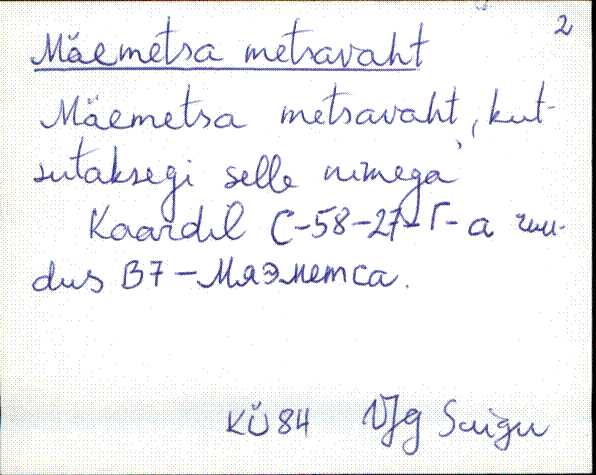 2
Mäemetsa metsavaht
Mäemetsa metsavaht, kut-
sutaksegi selle nimega
Kaardil C-58-27-Г-а ruu-
dus B7 – Мяэметса.
KÜ 84 Vįg Suigu